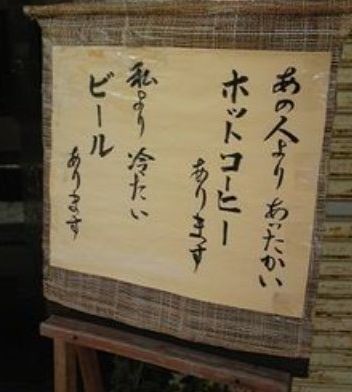 あの人より あったかい
ホットコーヒー
あります
私より 冷たい
ビール
あります